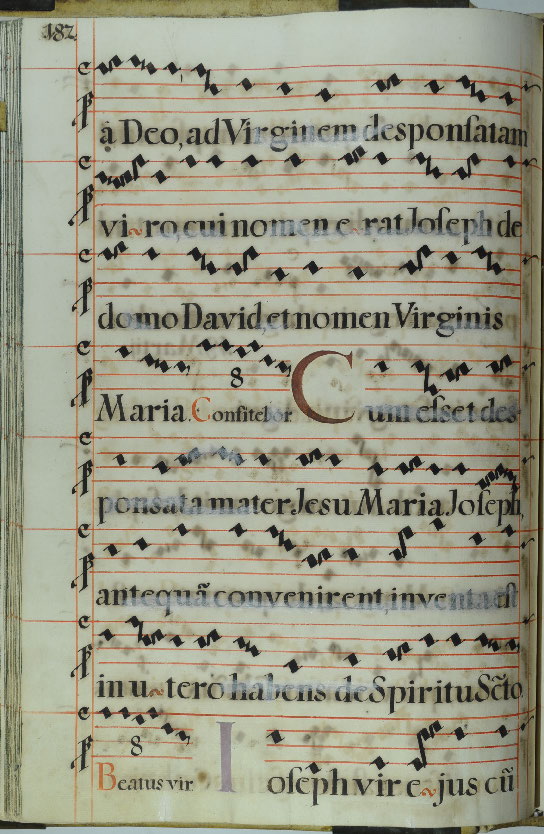 182
a Deo, ad Virginem desponsatam
vi~ro, cui nomen e~rat Joseph de
domo David, et nomen Virginis
Maria. Confitebor 8 Cum esset des-
ponsata mater Jesu Maria Joseph,
antequã convenirent, inventa est
in u~tero habens de Spiritu Scto
8
Beatus vir Joseph vir e~jus cũ